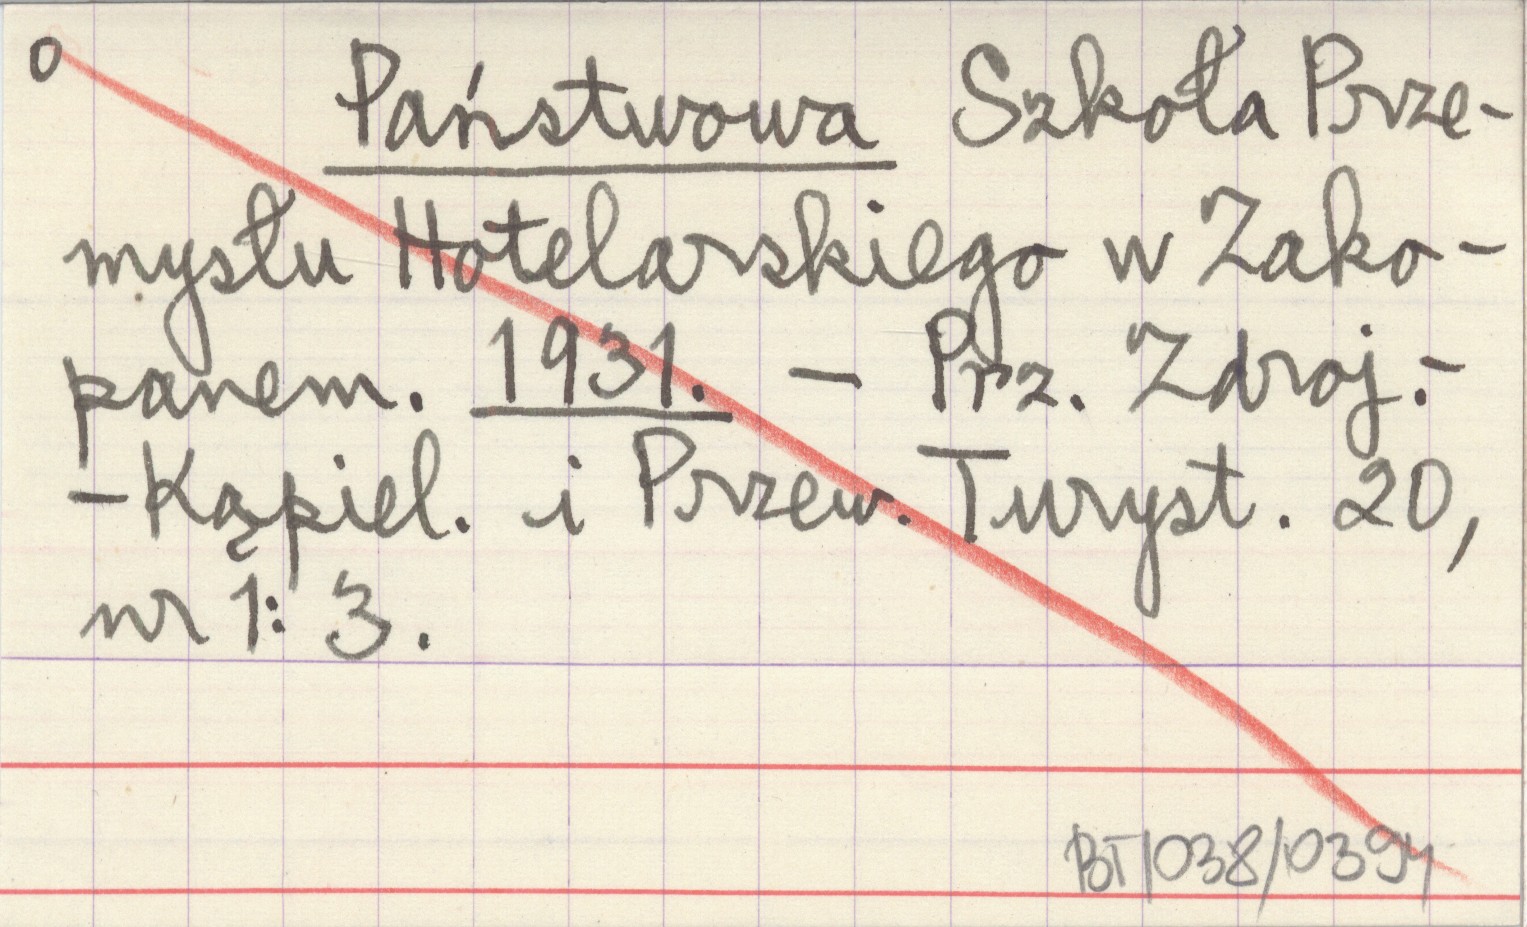 o Państwowa Szkoła Prze-
mysłu Hotelarskiego w Zako-
panem. 1931. – Prz. Zdroj.-
-Kąpiel. i Przew. Turyst. 20,
nr 1: 3.
BT/038/0394